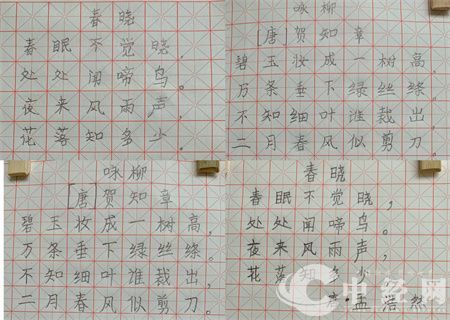 春晓
春眠不觉晓，
处处闻啼鸟。
夜来风雨声，
花落知多少。
咏柳
[唐]贺知章
碧玉妆成一树高，
万条垂下绿丝绦。
不知细叶谁裁出，
二月春风似剪刀。
咏柳
[唐]贺知章
碧玉妆成一树高，
万条垂下绿丝绦。
不知细叶谁裁出，
二月春风似剪刀。
春晓
春眠不觉晓，
处处闻啼鸟。
夜来风雨声，
花落知多少
孟浩然
中经网